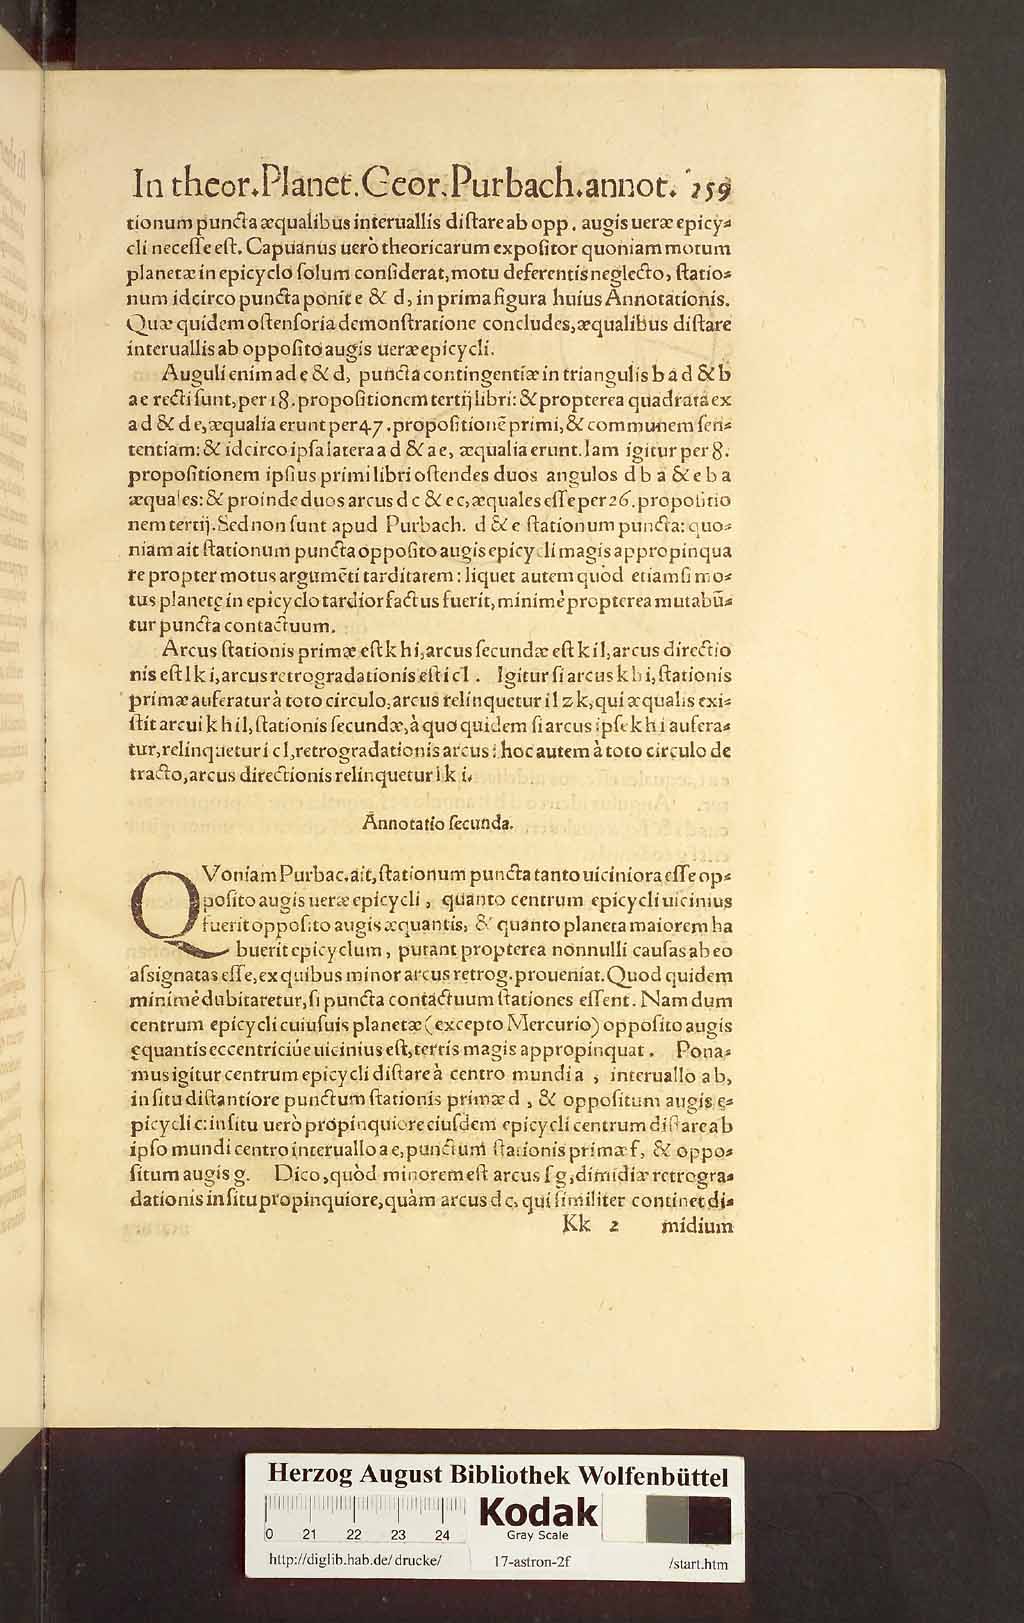 In theor. Planet. Geor. Purbach. annot. 259
tionum puncta æqualibus interuallis distare ab opp. augis ueræ epicy=
cli necesse est. Capuanus uerò theoricarum expositor quoniam motum
planetæ in epicyclo solum considerat, motu deferentis neglecto, statio=
num idcirco puncta ponit e & d, in prima figura huius Annotationis.
Quæ quidem ostensoria demonstratione concludes, æqualibus distare
interuallis ab opposito augis ueræ epicycli.
Auguli enim ad e & d, puncta contingentiæ in triangulis b a d & b
a e recti sunt, per 18. propositionem tertij libri: & propterea quadrata ex
a d & d e, æqualia erunt per 47. propositionẽ primi, & communem sen=
tentiam: & idcirco ipsa latera a d & a e, æqualia erunt. Iam igitur per 8.
propositionem ipsius primi libri ostendes duos angulos d b a & e b a
æquales: & proinde duos arcus d c & e c, æquales esse per 26. propositio
nem tertij. Sed non sunt apud Purbach. d & e stationum puncta: quo=
niam ait stationum puncta opposito augis epicycli magis appropinqua
re propter motus argumẽti tarditatem: liquet autem quòd etiamsi mo=
tus planetę in epicyclo tardior factus fuerit, minimè propterea mutabũ=
tur puncta contactuum.
Arcus stationis primæ est k h i, arcus secundæ est k i l, arcus directio
nis est l k i, arcus retrogradationis est i c l. Igitur si arcus k h i, stationis
primæ auferatur à toto circulo, arcus relinquetur i l z k, qui æqualis exi=
stit arcui k h i l, stationis secundæ, à quo quidem si arcus ipse k h i aufera=
tur, relinquetur i c l, retrogradationis arcus: hoc autem à toto circulo de
tracto, arcus directionis relinquetur l k i.
Annotatio secunda.
QVoniam Purbac. ait, stationum puncta tanto uiciniora esse op=
posito augis ueræ epicycli, quanto centrum epicycli uicinius
fuerit opposito augis æquantis, & quanto planeta maiorem ha
buerit epicyclum, putant propterea nonnulli causas ab eo
assignatas esse, ex quibus minor arcus retrog. proueniat. Quod quidem
minimè dubitaretur, si puncta contactuum stationes essent. Nam dum
centrum epicycli cuiusuis planetæ (excepto Mercurio) opposito augis
ęquantis eccentriciúe uicinius est, terris magis appropinquat. Pona=
mus igitur centrum epicycli distare à centro mundi a, interuallo a b,
in situ distantiore punctum stationis primæ d, & oppositum augis e=
picycli c: in situ uerò propinquiore eiusdem epicycli centrum distare ab
ipso mundi centro interuallo a e, punctum stationis primæ f, & oppo=
situm augis g. Dico, quòd minorem est arcus f g, dimidiæ retrogra=
dationis in situ propinquiore, quàm arcus d c, qui similiter continet di=
Kk 2 midium
Herzog August Bibliothek Wolfenbüttel
0 21 22 23 24
Kodak
Gray Scale
http://diglib.hab.de/drucke/ 17-astron-2f /start.htm